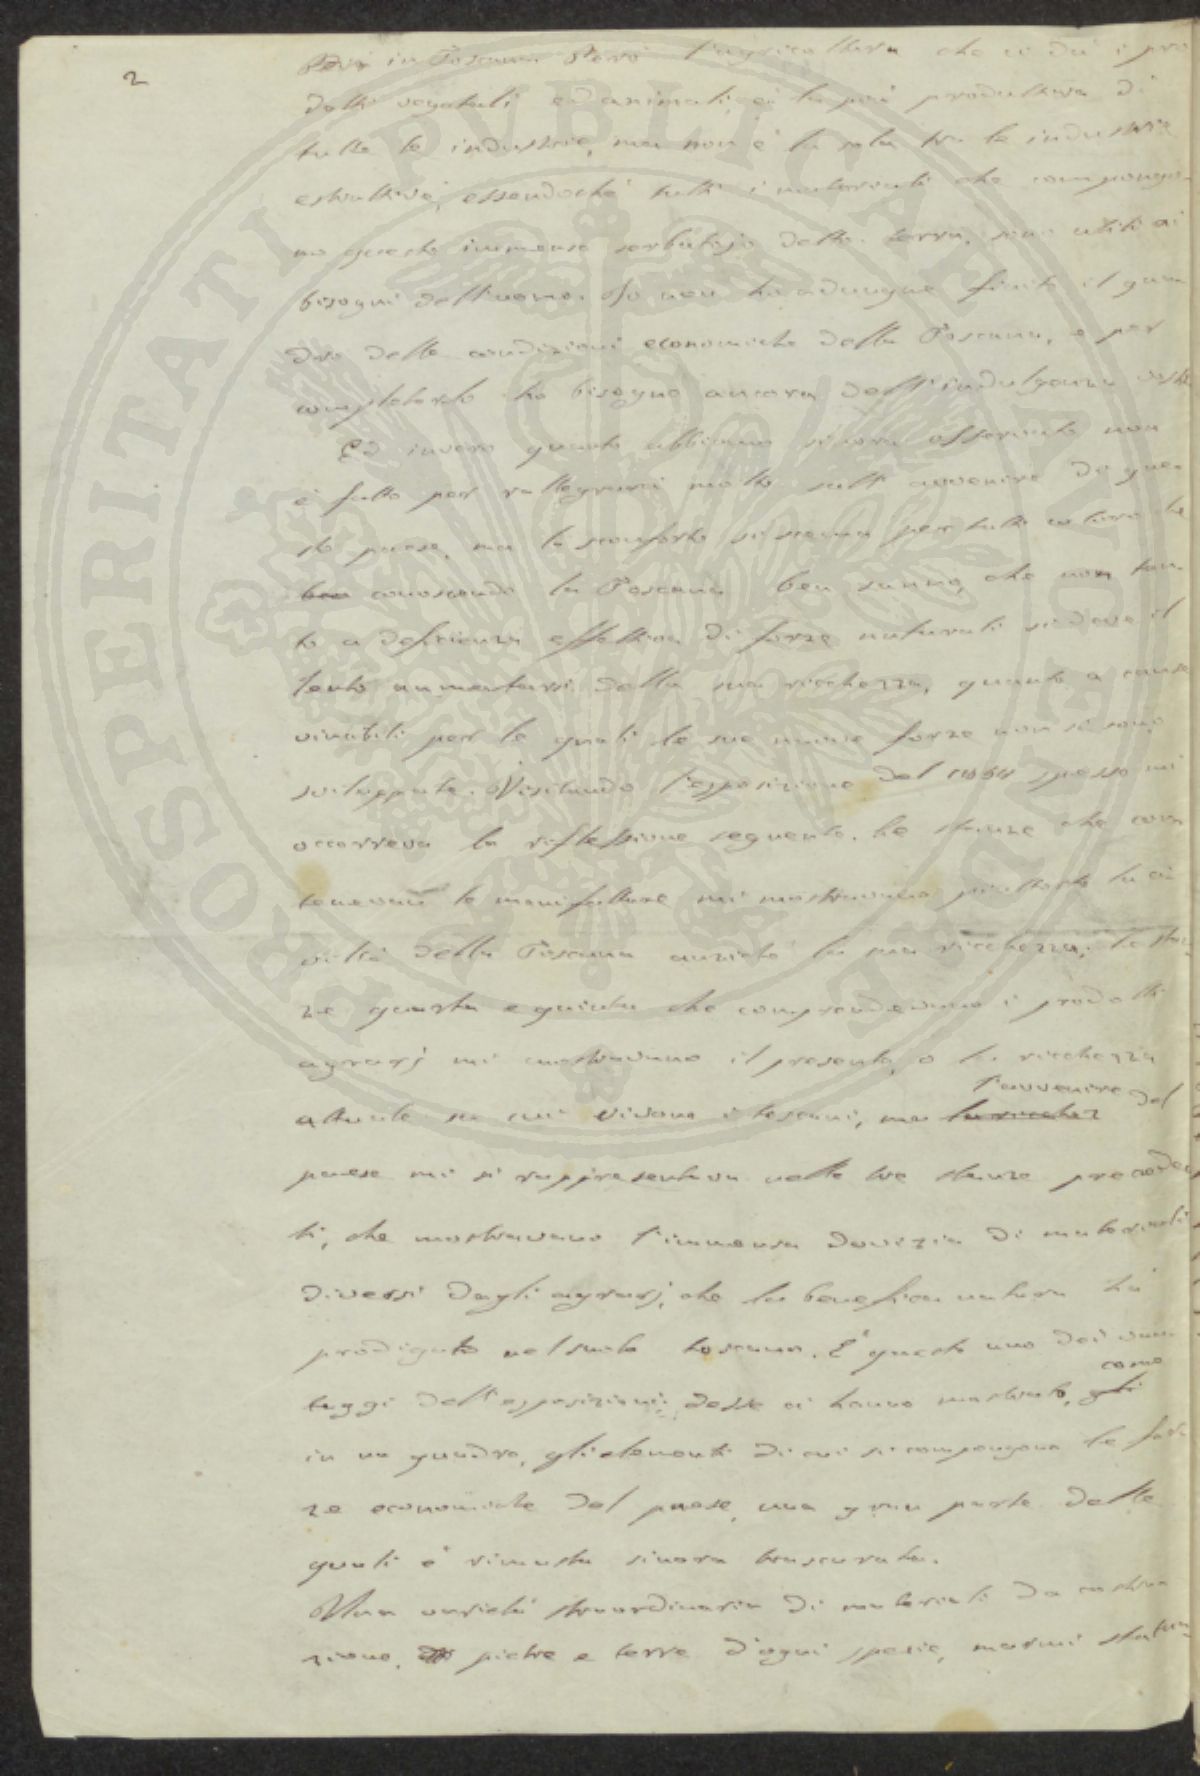 2
in Toscana Però l'agricoltura che ci dà i pro
dotti vegetali ed animali, è la più produttiva di
tutte le industrie, ma non è la sola tra le industrie
estrattive, essendoché tutti i materiali che compongo
no questo immenso serbatojo della terra, sono utili ai
bisogni dell'uomo. Io non ho adunque finito il qua
dro delle condizioni economiche della Toscana, e per
completarlo ho bisogno ancora dell'indulgenza vostra
Ed invero quanto abbiamo sinora osservato non
è fatto per rallegrarci molto sull'avvenire di que
sto paese, ma lo sconforto si scema per tutti coloro che
ben conoscendo la Toscana ben sanno, che non tan
to a deficienza effettiva di forze naturali si deve il
lento aumentarsi della sua ricchezza, quanto a cause
vincibili per le quali le sue nuove forze non si sono
sviluppate. Visitando l'esposizione del 1854 spesso mi
occorreva la riflessione seguente. Le stanze che con
tenevano le manifatture mi mostravano piuttosto la ci
viltà della Toscana anziché la sua ricchezza; le stan
ze quarta e quinta che comprendevano i prodotti
agrarj mi mostravano il presente, o la ricchezza
l'avvenire
attuale su cui vivono i toscani, ma la ricchez del
paese mi si rappresentava nelle tre stanze preceden
ti, che mostravano l'immensa dovizia di materiali
diversi dagli agrarj, che la benefica natura ha
prodigato nel suolo toscano. E' questo uno dei van
come
taggi dell'esposizioni; desse ci hanno mostrato, gli
in un quadro, gli elementi di cui si compongono le for
ze economiche del paese, una gran parte delle
quali è rimasta sinora trascurata.
Una varietà straordinaria di materiali da costru
zione, pietre e terre d'ogni specie, marmi statua
PROSPERITATI PVBLICAE AVGENDAE